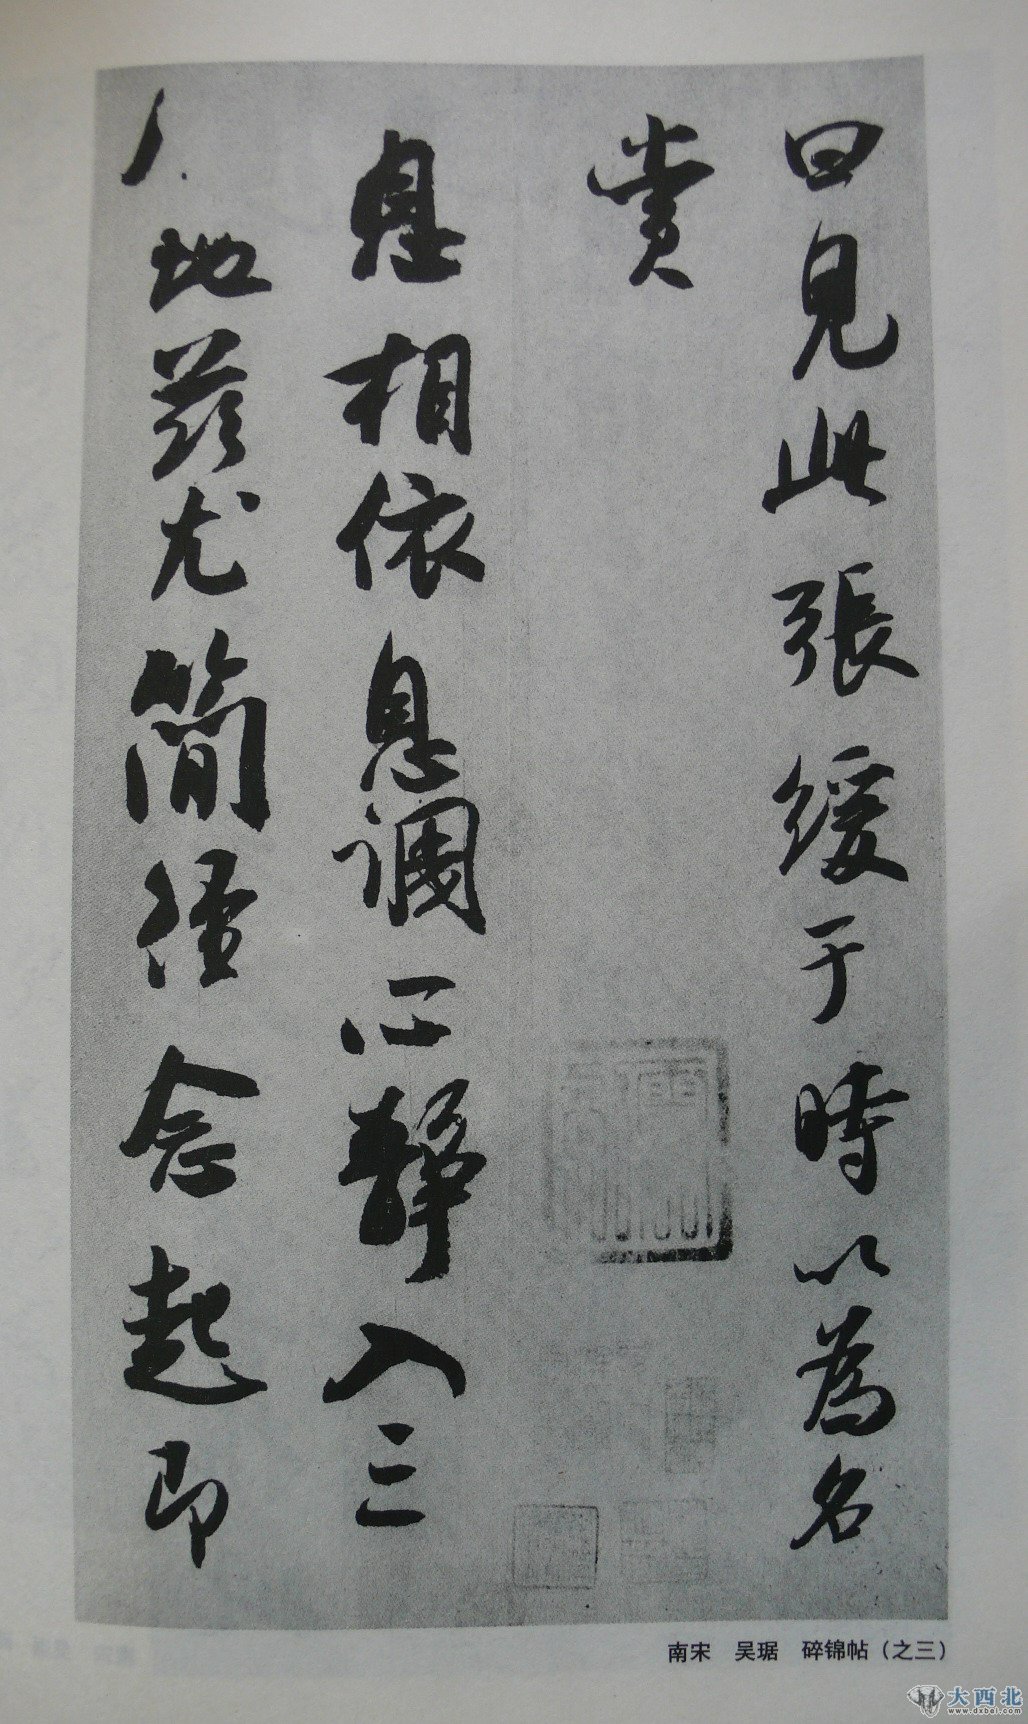 曰見此張緩于時以為名
賞
息相依息調心靜入三
地茲尤簡徑念起即
南宋 吴琚 碎锦帖（之三）
大西北
www.dxbei.com